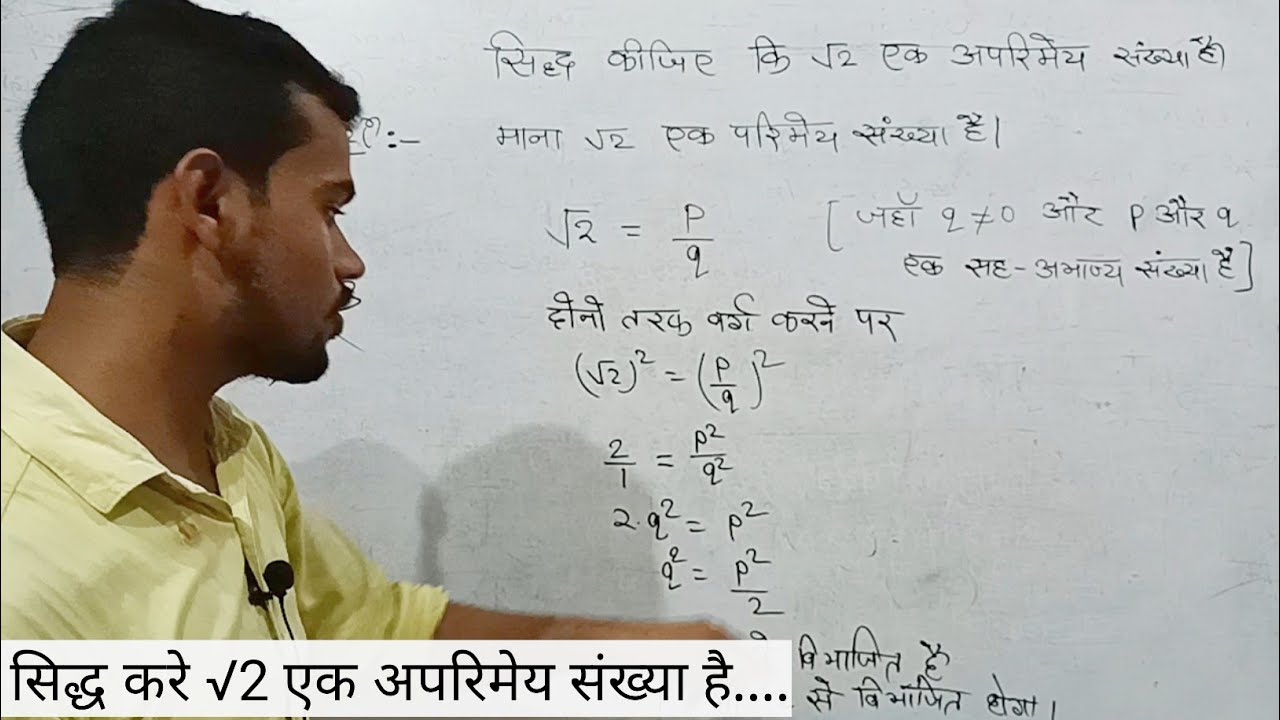 सिद्ध कीजिए कि √2 एक अपरिमेय संख्या है।
माना √2 एक परिमेय संख्या है।
√2 = p/q [जहाँ q ≠ 0 और p और q
एक सह-अभाज्य संख्या है]
दोनो तरफ वर्ग करने पर
(√2)² = (p/q)²
2/1 = p²/q²
2·q² = p²
q² = p²/2
विभाजित है
से विभाजित होगा।
सिद्ध करे √2 एक अपरिमेय संख्या है....